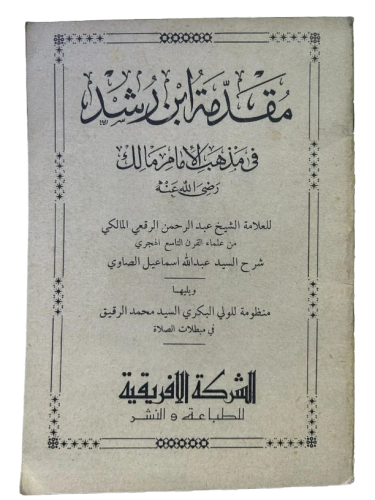 مُقَدِّمَةُ ابْنِ رُشْدٍ
فى مَذْهَبِ الإِمَامِ مَالِك
رَضِىَ اللهُ عَنْهُ
للعلامة الشيخ عبد الرحمن الرقعي المالكي
من علماء القرن التاسع الهجري
شرح السيد عبدالله اسماعيل الصاوي
ويليها
منظومة للولي البكري السيد محمد الرقيق
في مبطلات الصلاة
الشركة الافريقية
للطباعة و النشر